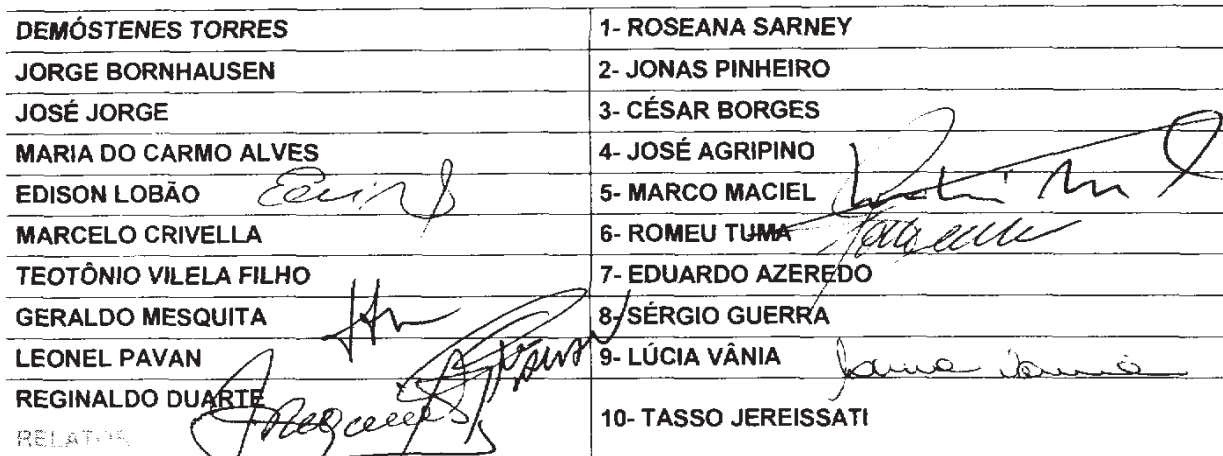 DEMÓSTENES TORRES 1- ROSEANA SARNEY
JORGE BORNHAUSEN 2- JONAS PINHEIRO
JOSÉ JORGE 3- CÉSAR BORGES
MARIA DO CARMO ALVES 4- JOSÉ AGRIPINO
EDISON LOBÃO 5- MARCO MACIEL
MARCELO CRIVELLA 6- ROMEU TUMA
TEOTÔNIO VILELA FILHO 7- EDUARDO AZEREDO
GERALDO MESQUITA 8- SÉRGIO GUERRA
LEONEL PAVAN 9- LÚCIA VÂNIA
REGINALDO DUARTE 10- TASSO JEREISSATI
RELATOR